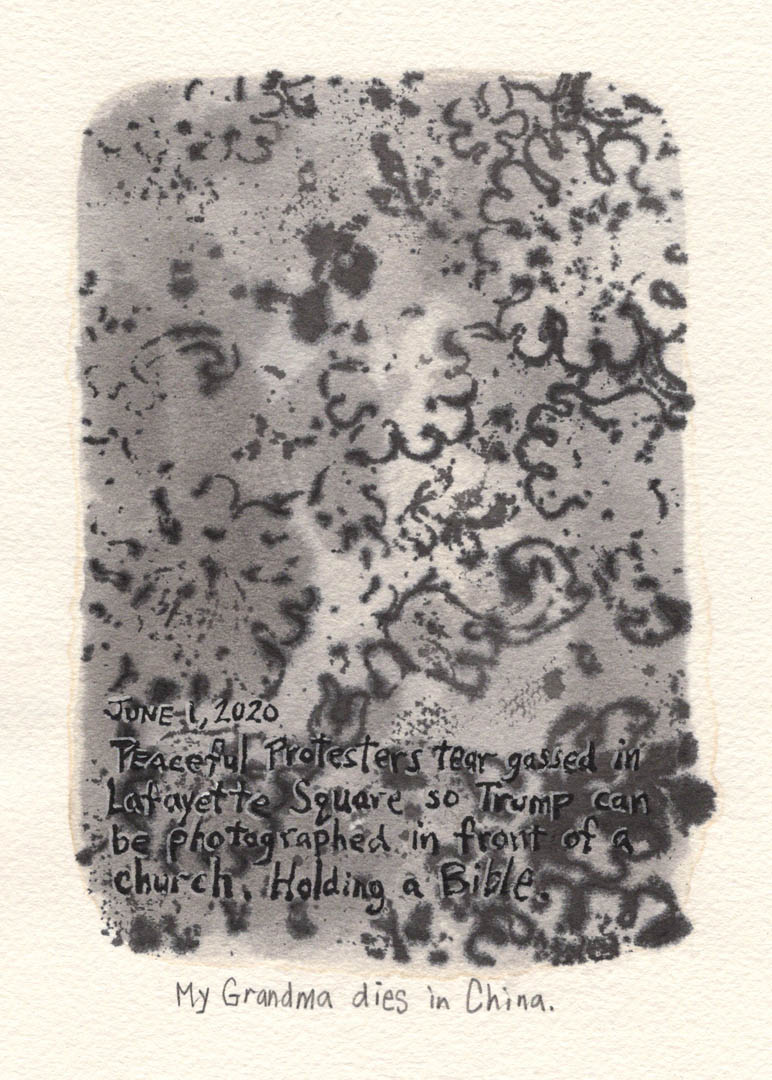 June 1, 2020
Peaceful Protesters tear gassed in
Lafayette Square so Trump can
be photographed in front of a
church. Holding a Bible.
My Grandma dies in China.